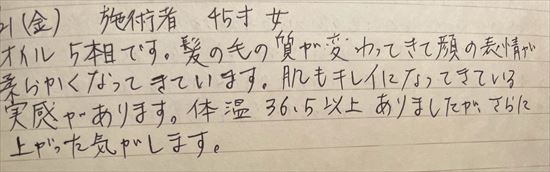 21(金) 施術者 45才 女
オイル 5本目です。髪の毛の質が変わってきて顔の表情が
柔らかくなってきています。肌もキレイになってきている
実感があります。体温 36.5以上 ありましたが、さらに
上がった気がします。